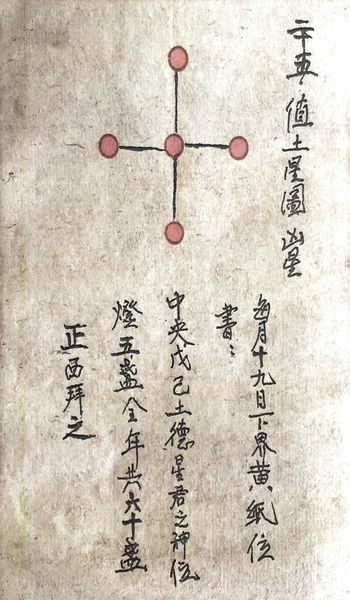 二十五 值土星圖 凶星
每月十九日下界黄紙位
書:
中央戊己土德星君之神位
燈五盞全年共六十盞
正西拜之